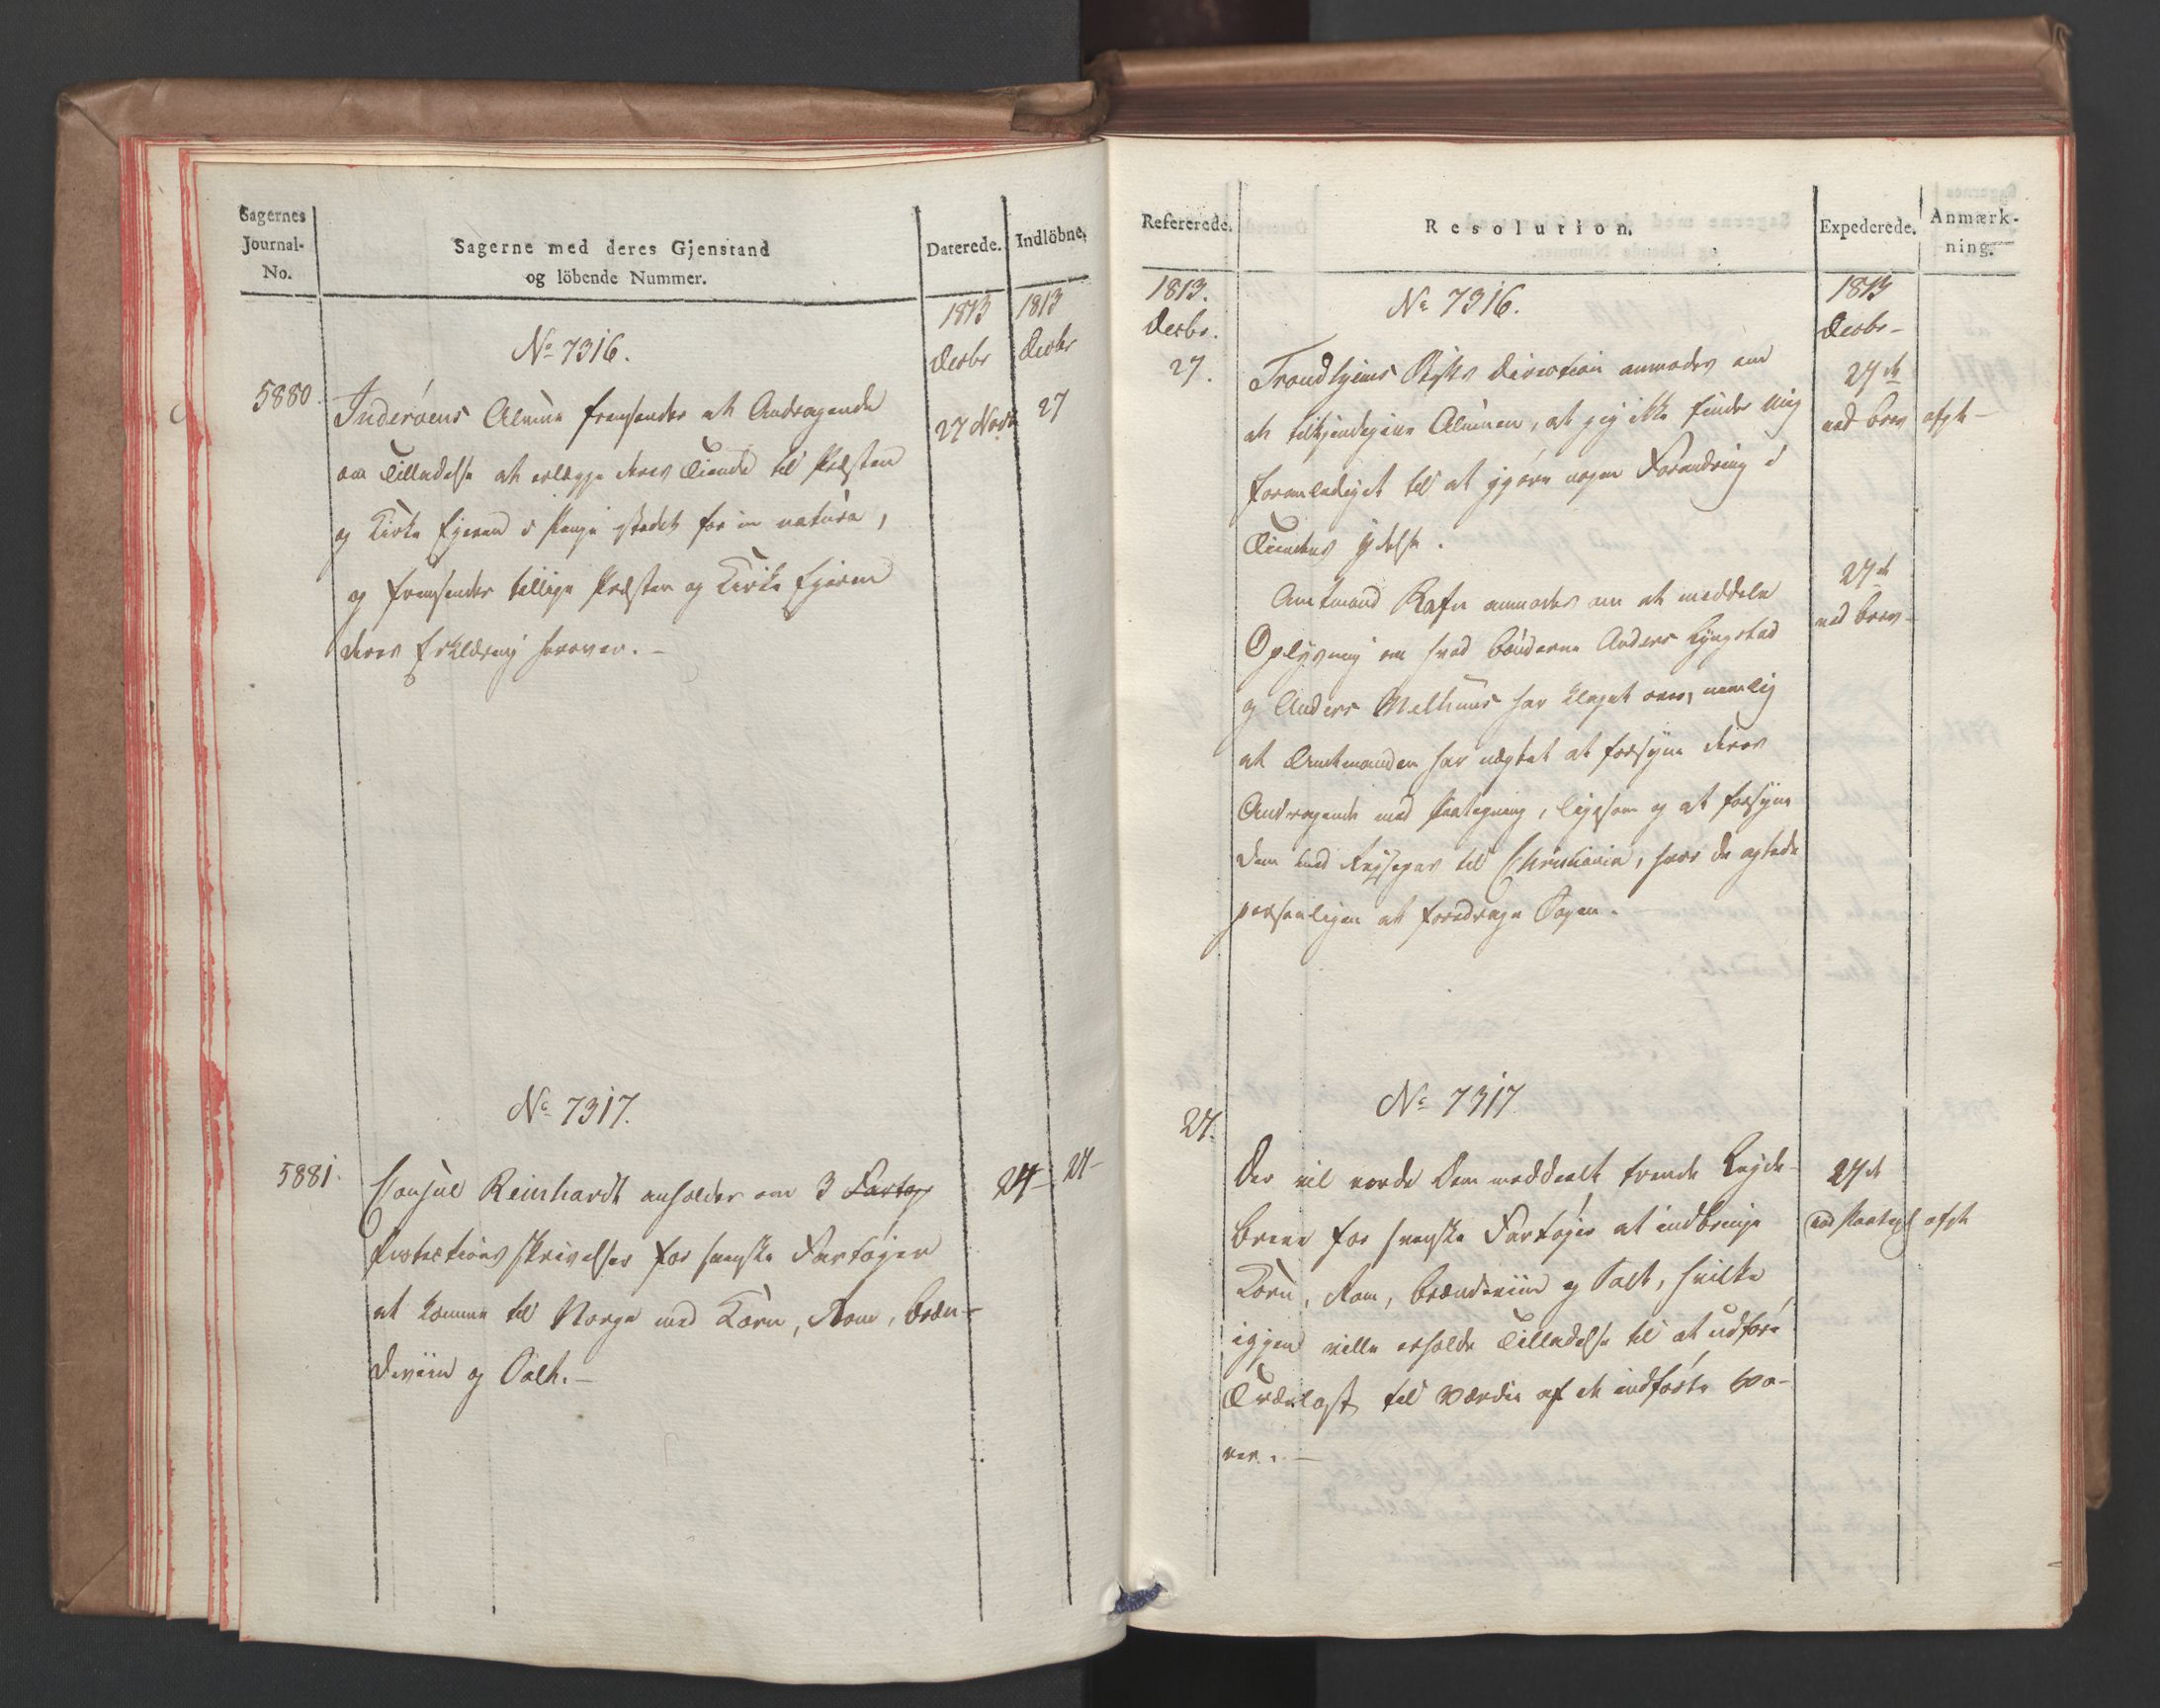 Sagernes
Journal-
No.
Sagerne med deres Gjenstand
og löbende Nummer.
Daterede.
Indlöbne.
1813
Decbr
1813
Decbr
No 7316.
5880.
27 Novbr
27
Inderöens Almue fremsender et Andragende
om Tilladelse at erlægge deres Tiende til Præsten
og Kirke Ejeren i Penge istedet for in natura,
og fremsender tillige Præsten og Kirke Ejeren
deres Erklæring herover. –
No 7317.
5881.
24 –
27 –
Consul Reinhardt anholder om 3 Fartøj
Protections skrivelser for svenske Fartøjer
at komme til Norge med Korn, Rom, Bræn-
deviin og Salt. –
Refererede.
Resolution.
Expederede.
Anmærk-
ning.
1813.
Decbr.
27.
1813
Decbr –
No 7316.
Trondhjems Stifts Direction anmodes om
at tilkjendegive Almuen, at jeg ikke finder mig
foranlediget til at gjøre nogen Forandring i
Tiendens Ydelse.
27de
ved brev
afgt –
Amtmand Rafn anmodes om at meddele
Oplysning om hvad Bønderne Anders Lyngstad
og Anders Melhuus har klaget over, nemlig
at Amtmanden har nægtet at forsyne deres
Andragende med Paategning, ligesom og at forsyne
dem med Rejsepas til Christiania, hvor de agtede
personligen at foredrage Sagen.
27de
ved brev –
No 7317
27.
Der vil vorde Dem meddeelt trende Lejde-
breve for svenske Fartøjer at indbringe
Korn, Rom, Brændeviin og Salt, hvilke
igjen ville erholde Tilladelse til at udføre
Trælast til Værdie af de indførte Va-
rer. –
27de
ved Paategn
afgt